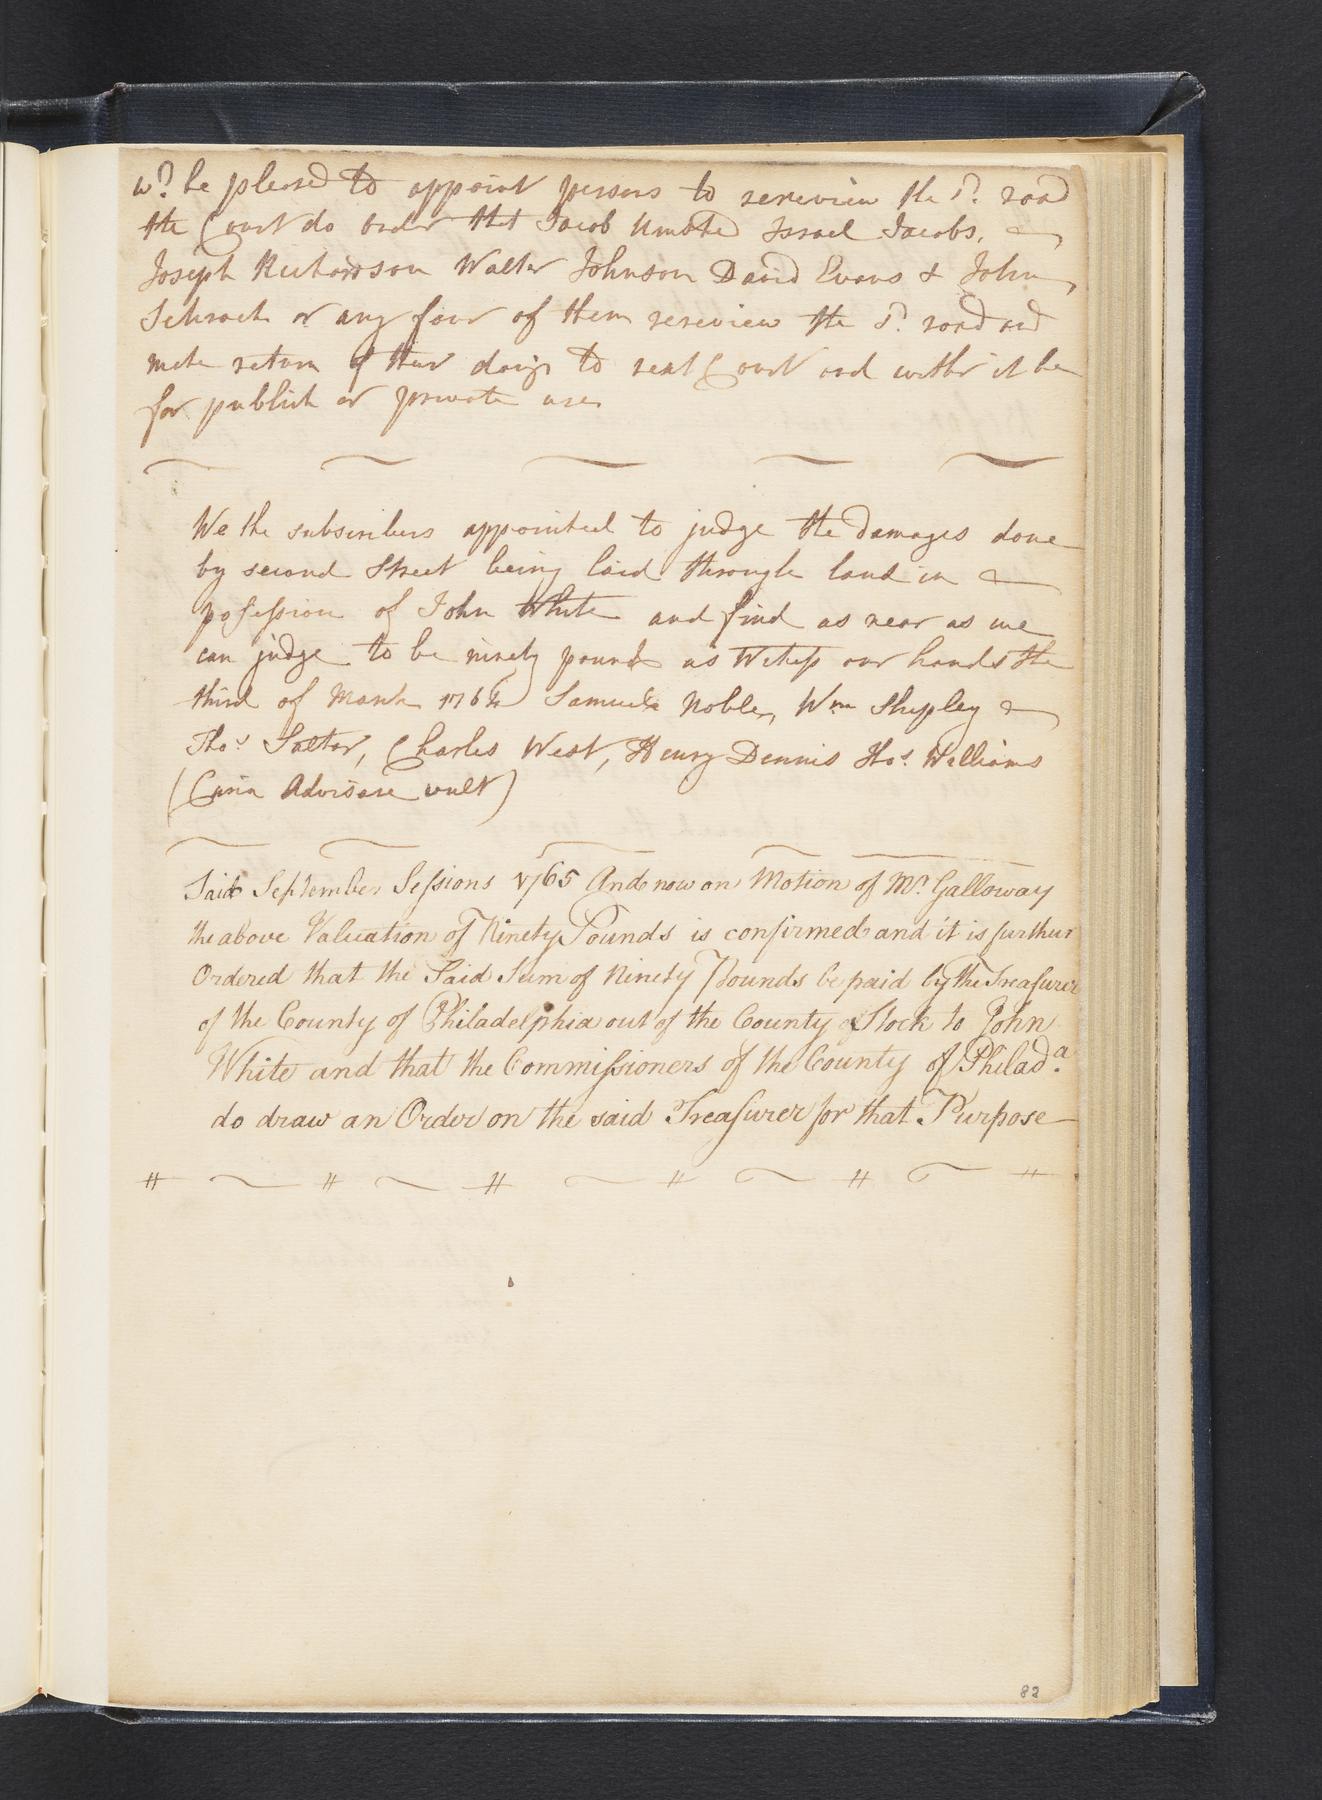 wd. be pleased to appoint persons to rereview the sd. road
the Court do order that Jacob Umsted Israel Jacobs,
Joseph Richardson Walter Johnson David Evans & John
Schrack or any four of them rereview the sd. road and
make return of their doings to next Court and wither it be
for publick or private use
We the subscribers appointed to judge the damages done
by second Street being laid through land in
posession of John White and find as near as we
can judge to be ninety pounds as Witness our hands the
third of March 1764 Samuel Noble, Wm Shipley
Thos. Salter, Charles West, Henry Dennis Thos. Williams
(Curia Advisare vult)
Said September Sessions 1765 And now on Motion of Mr. Galloway
the above Valuation of Ninety Pounds is confirmed and it is further
Ordered that the Said Sum of Ninety Pounds be paid by the Treasurer
of the County of Philadelphia out of the County Stock to John
White and that the Commissioners of the County of Philada.
do draw an Order on the said Treasurer for that Purpose
82